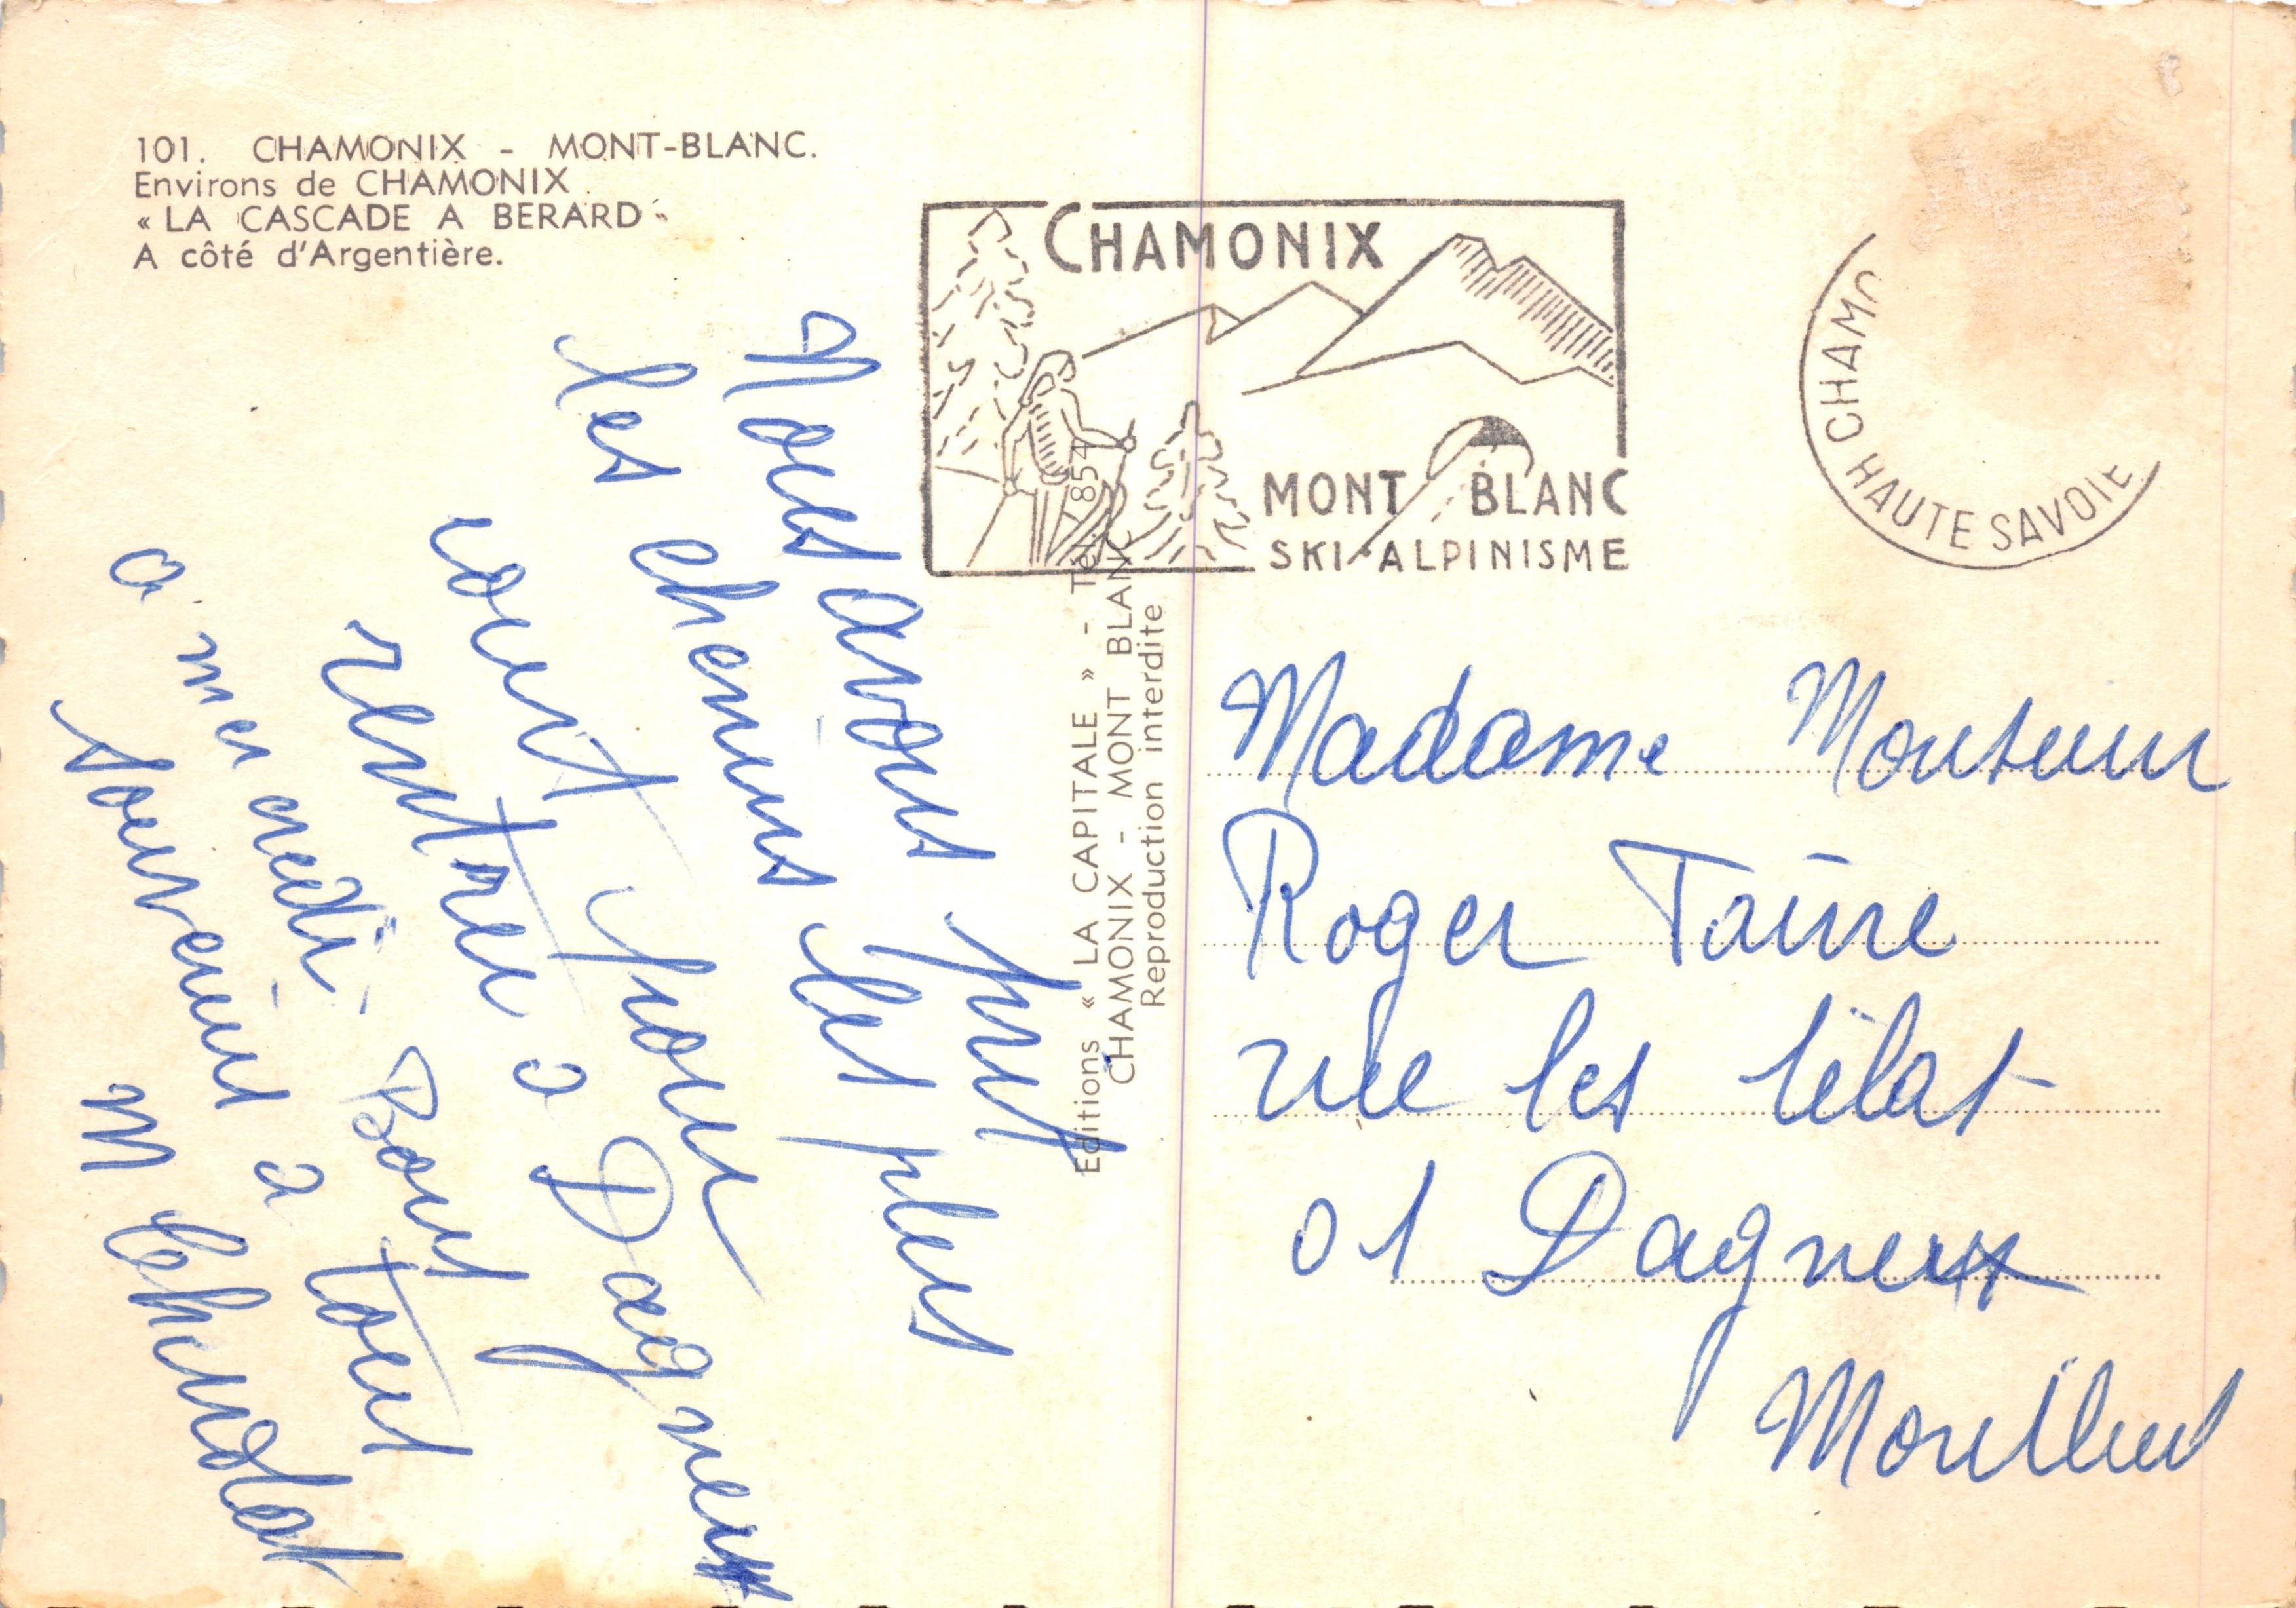 101. CHAMONIX - MONT-BLANC.
Environs de CHAMONIX
« LA CASCADE A BERARD »
A côté d'Argentière.
Nous avons pris
les chemins les plus
court pour
rentrer a Dagneux
a mercredi Bons
souvenirs a tous
M Chendat
Editions « LA CAPITALE » - Tél. 854
CHAMONIX - MONT BLANC
Reproduction interdite
CHAMONIX
MONT BLANC
SKI-ALPINISME
CHAMO
HAUTE SAVOIE
Madame Monsieur
Roger
rue les
01 Dagneux
Montluel